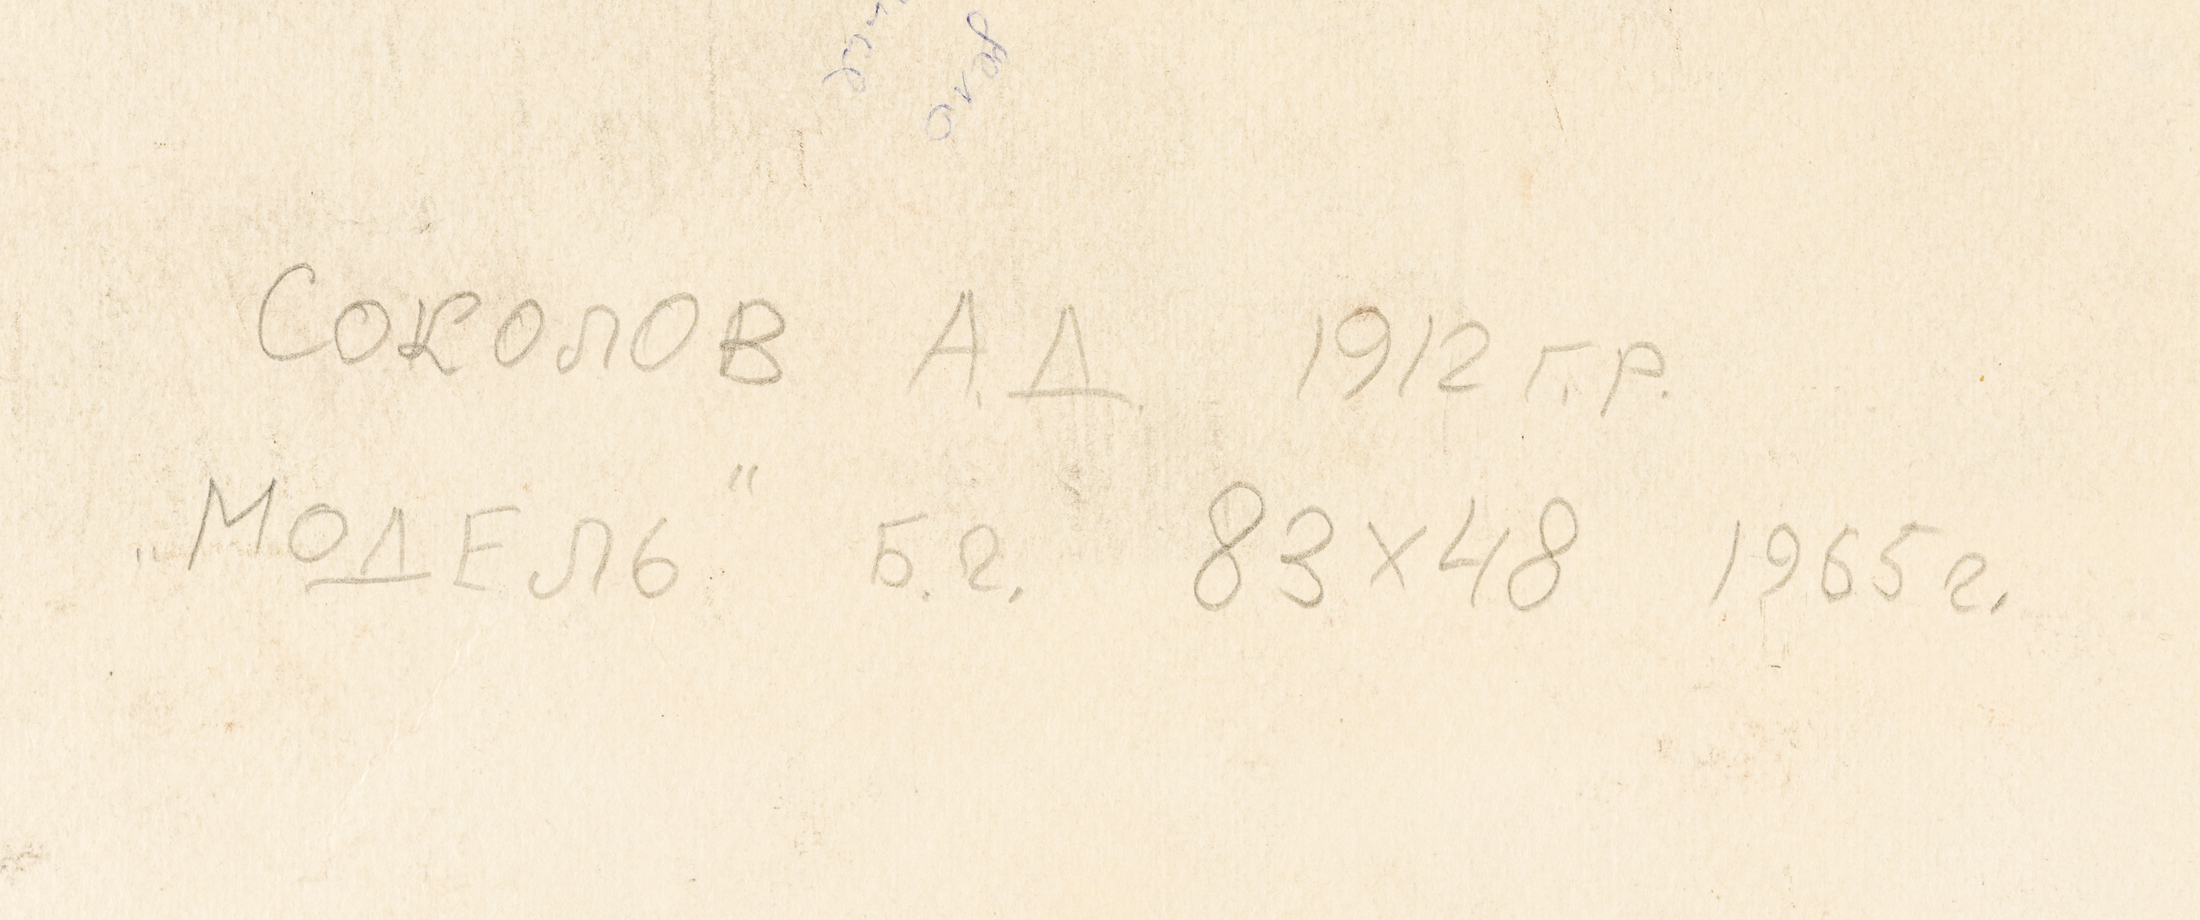 Соколов А.Д. 1912 г.р.
„Модель" Б.г. 83×48 1965г.